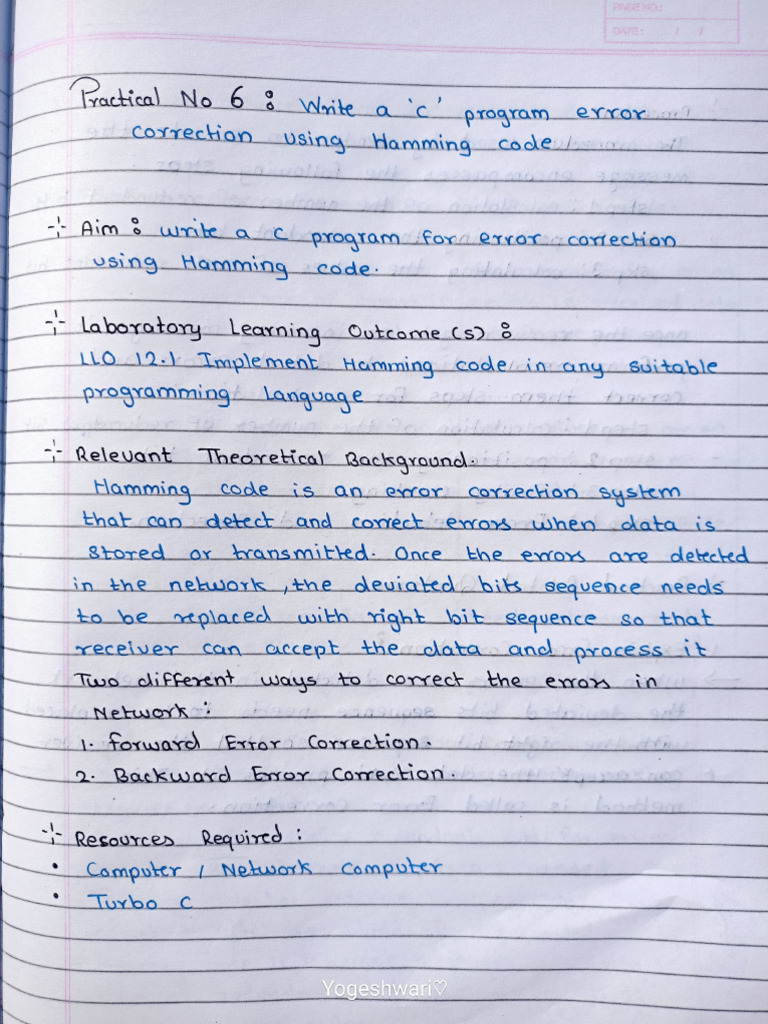 PAGE NO.:
DATE: / /
Practical No 6 : Write a 'c' program error
correction using Hamming code
-:- Aim : write a c program for error correction
using Hamming code.
-:- Laboratory Learning Outcome(s) :
LLO 12.1 Implement Hamming code in any suitable
programming Language
-:- Relevant Theoretical Background.
Hamming code is an error correction system
that can detect and correct errors when data is
stored or transmitted. Once the errors are detected
in the network, the deviated bits sequence needs
to be replaced with right bit sequence so that
receiver can accept the data and process it
Two different ways to correct the errors in
Network :
1. forward Error Correction.
2. Backward Error Correction.
-:- Resources Required :
• Computer / Network computer
• Turbo C
Yogeshwari♡